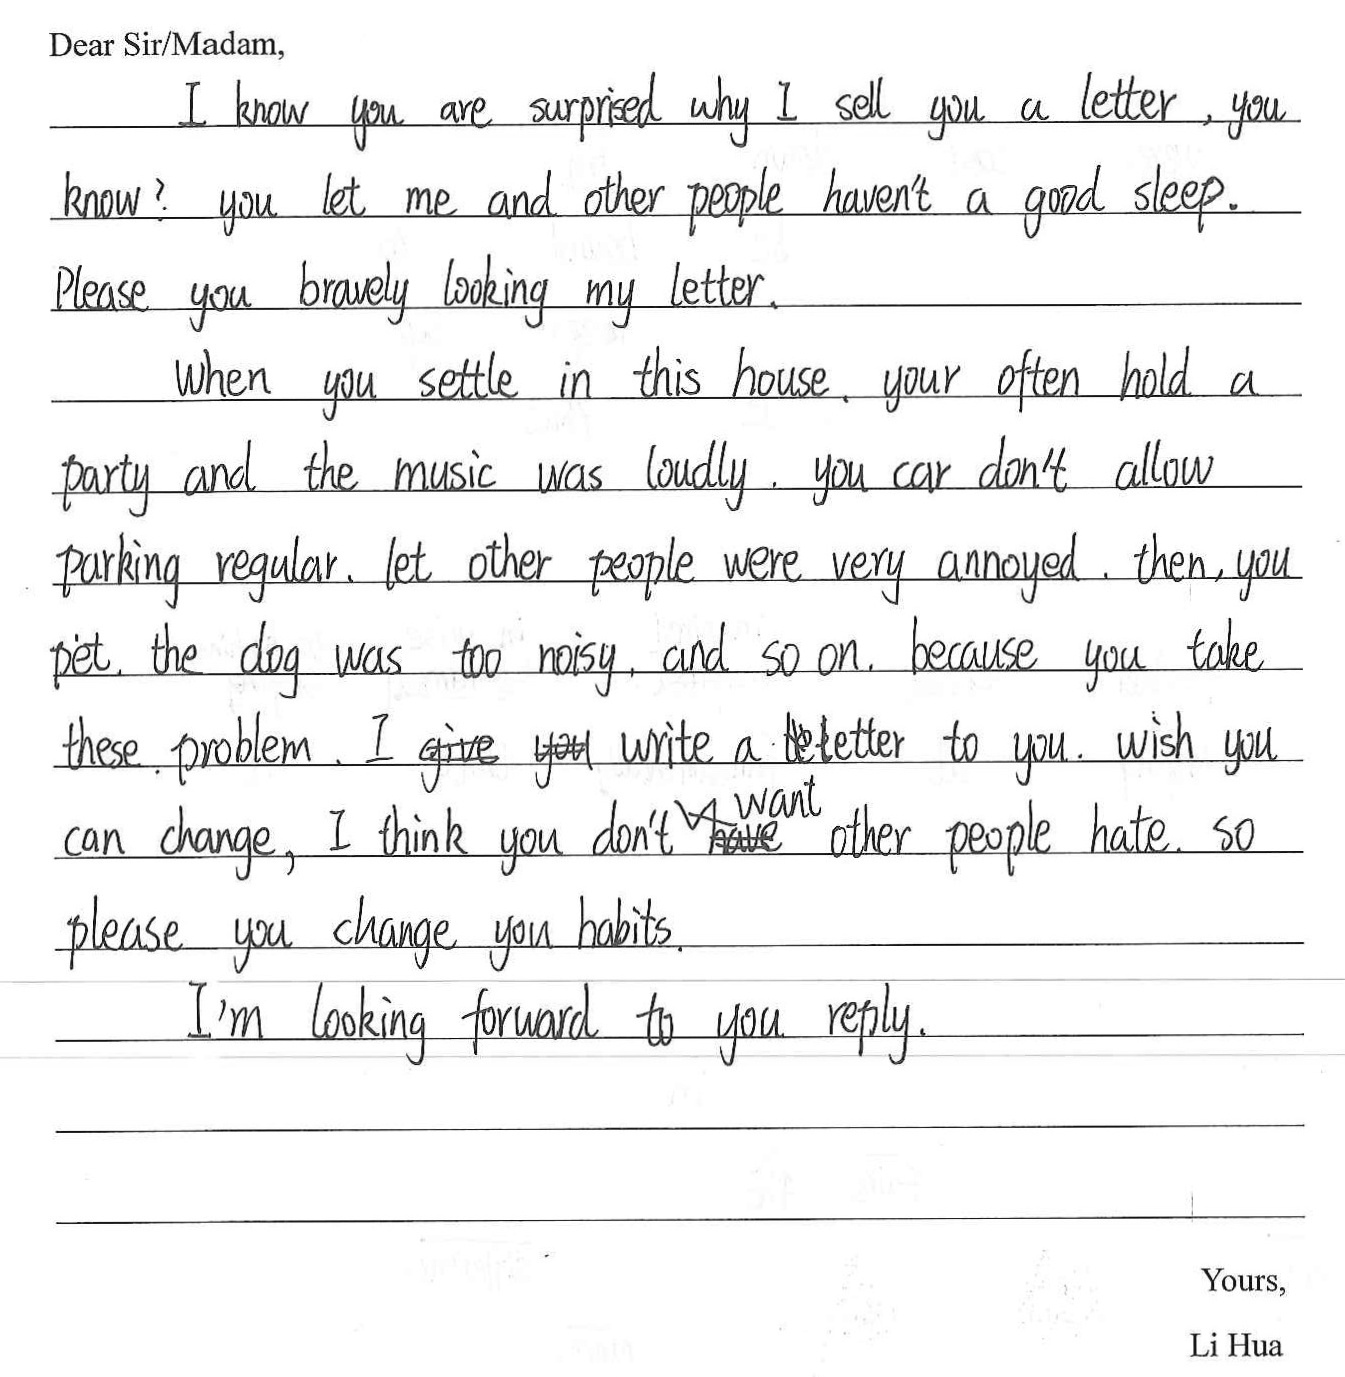 Dear Sir/Madam,
I know you are surprised why I sell you a letter, you
know? you let me and other people haven't a good sleep.
Please you bravely looking my letter.
When you settle in this house. your often hold a
party and the music was loudly. you car don't allow
parking regular. let other people were very annoyed. then, you
pet. the dog was too noisy. and so on. because you take
these problem. I write a letter to you. wish you
can change, I think you don't want other people hate. so
please you change you habits.
I'm looking forward to you reply.
Yours,
Li Hua